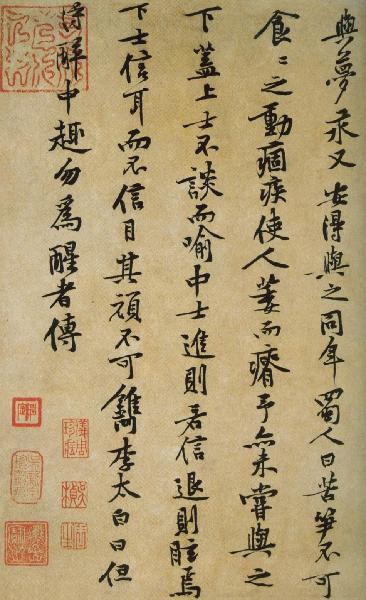 與夢永又安得與之同年蜀人曰苦笋不可
食〻之動痼疾使人萎而瘠予亦未嘗與之
下蓋上士不談而喻中士進則若信退則眩焉
下士信耳而不信目其頑不可鐫李太白曰但
得醉中趣勿為醒者傳